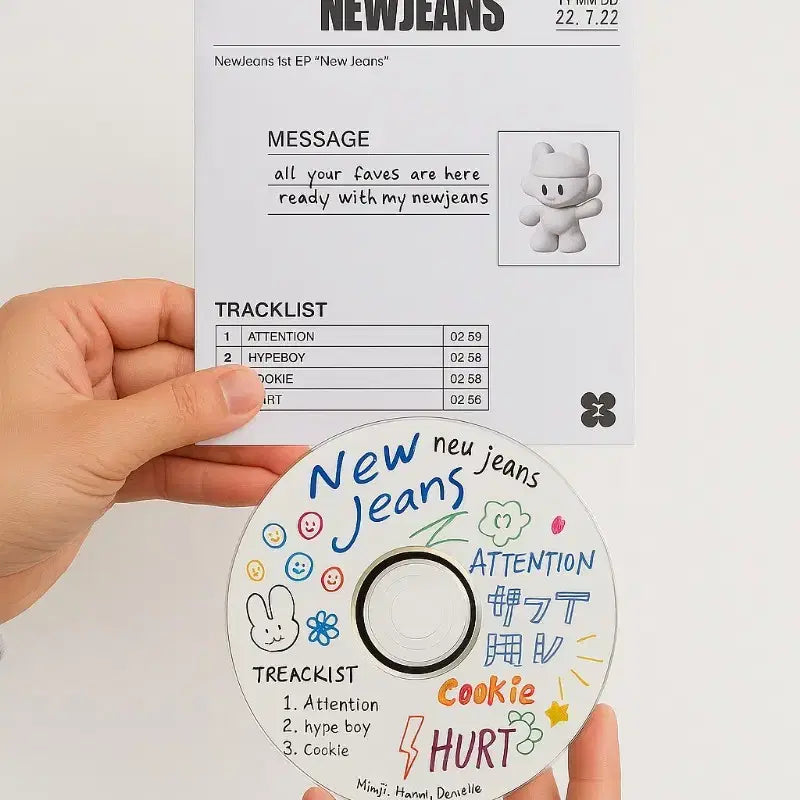 NEWJEANS
YY MM DD
22. 7.22
NewJeans 1st EP “New Jeans”
MESSAGE
all your faves are here
ready with my newjeans
TRACKLIST
1 ATTENTION 02 59
2 HYPEBOY 02 58
OOKIE 02 58
RT 02 56
New neu jeans
Jeans
ATTENTION
Cookie
HURT
TREACKIST
1. Attention
2. hype boy
3. Cookie
Mimji. Hannl, Denielle